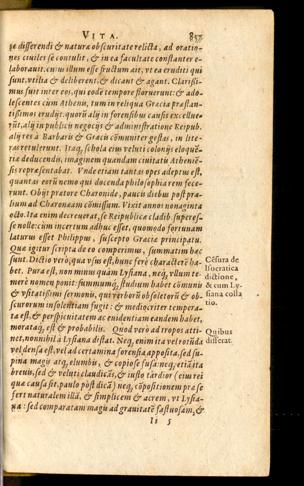 VITA. 837
se disserendi & naturæ obscuritate relicta, ad oratio-
nes ciuiles se contulit, & in ea facultate constanter e-
laborauit. cum illum esse fructum ait, vt ea eruditi qui
sunt, vtilia & deliberent, & dicant & agant. Clarissi-
mus fuit inter eos, qui eode tempore floruerunt: & ado-
lescentes cum Athenis, tum in reliqua Græcia præstan-
tissimos erudijt: quorū alij in forensibus causis excellue-
rūt, alij in publicis negocijs & administratione Reipub.
alij res à Barbaris & Græcis cōmuniter gestas, in lite-
ras retulerunt. Itaq, schola eius veluti colonijs eloquē-
tiæ deducendis, imaginem quandam ciuitatis Atheniē-
sis repræsentabat. Vnde etiam tantas opes adeptus est,
quantas eorū nemo qui docenda philosophia rem fece-
runt. Obijt pratore Charonide, paucis diebus post præ-
lium ad Charonæam cōmissum. Vixit annos nonaginta
octo. Ita enim decreuerat, se Reipublicæ cladib. superes-
se nolle: cum incertum adhuc esset, quomodo fortunam
laturus esset Philippus, suscepto Græciæ principatu.
Quæ igitur scripta de eo comperimus, summatim hæc
sunt. Dictio verò, qua vsus est, hunc ferè characterē ha-
bet. Pura est, non minus quàm Lysiana, neq, vllum te-
merè nomen ponit: summumq, studium habet cōmunis
& vsitatissimi sermonis, qui verborū obsoletorū & ob-
scurorum insolentiam fugit: & mediocriter tempera-
ta est. & perspicuitatem ac euidentiam eandem habet,
morataq, est & probabilis. Quod verò ad tropos atti-
net, nonnihil à Lysiana distat. Neq, enim ita vel rotūda
vel densa est, vel ad certamina forensia apposita. sed su-
pina magis atq, elumbis, & copiosè fusa: neq, etiā ita
breuis, sed & veluti claudicās, & iusto tardior (cui rei
quæ causa sit, paulo pòst dicā) neq, cōpositionem præ se
fert naturalem illā, & simplicem & acrem, vt Lysia-
na: sed comparatam magis ad grauitatē fastuosam, &
Ii 5
Cēsura de
Isocratica
dictione,
& cum Ly-
siana colla
tio.
Quibus
differat.